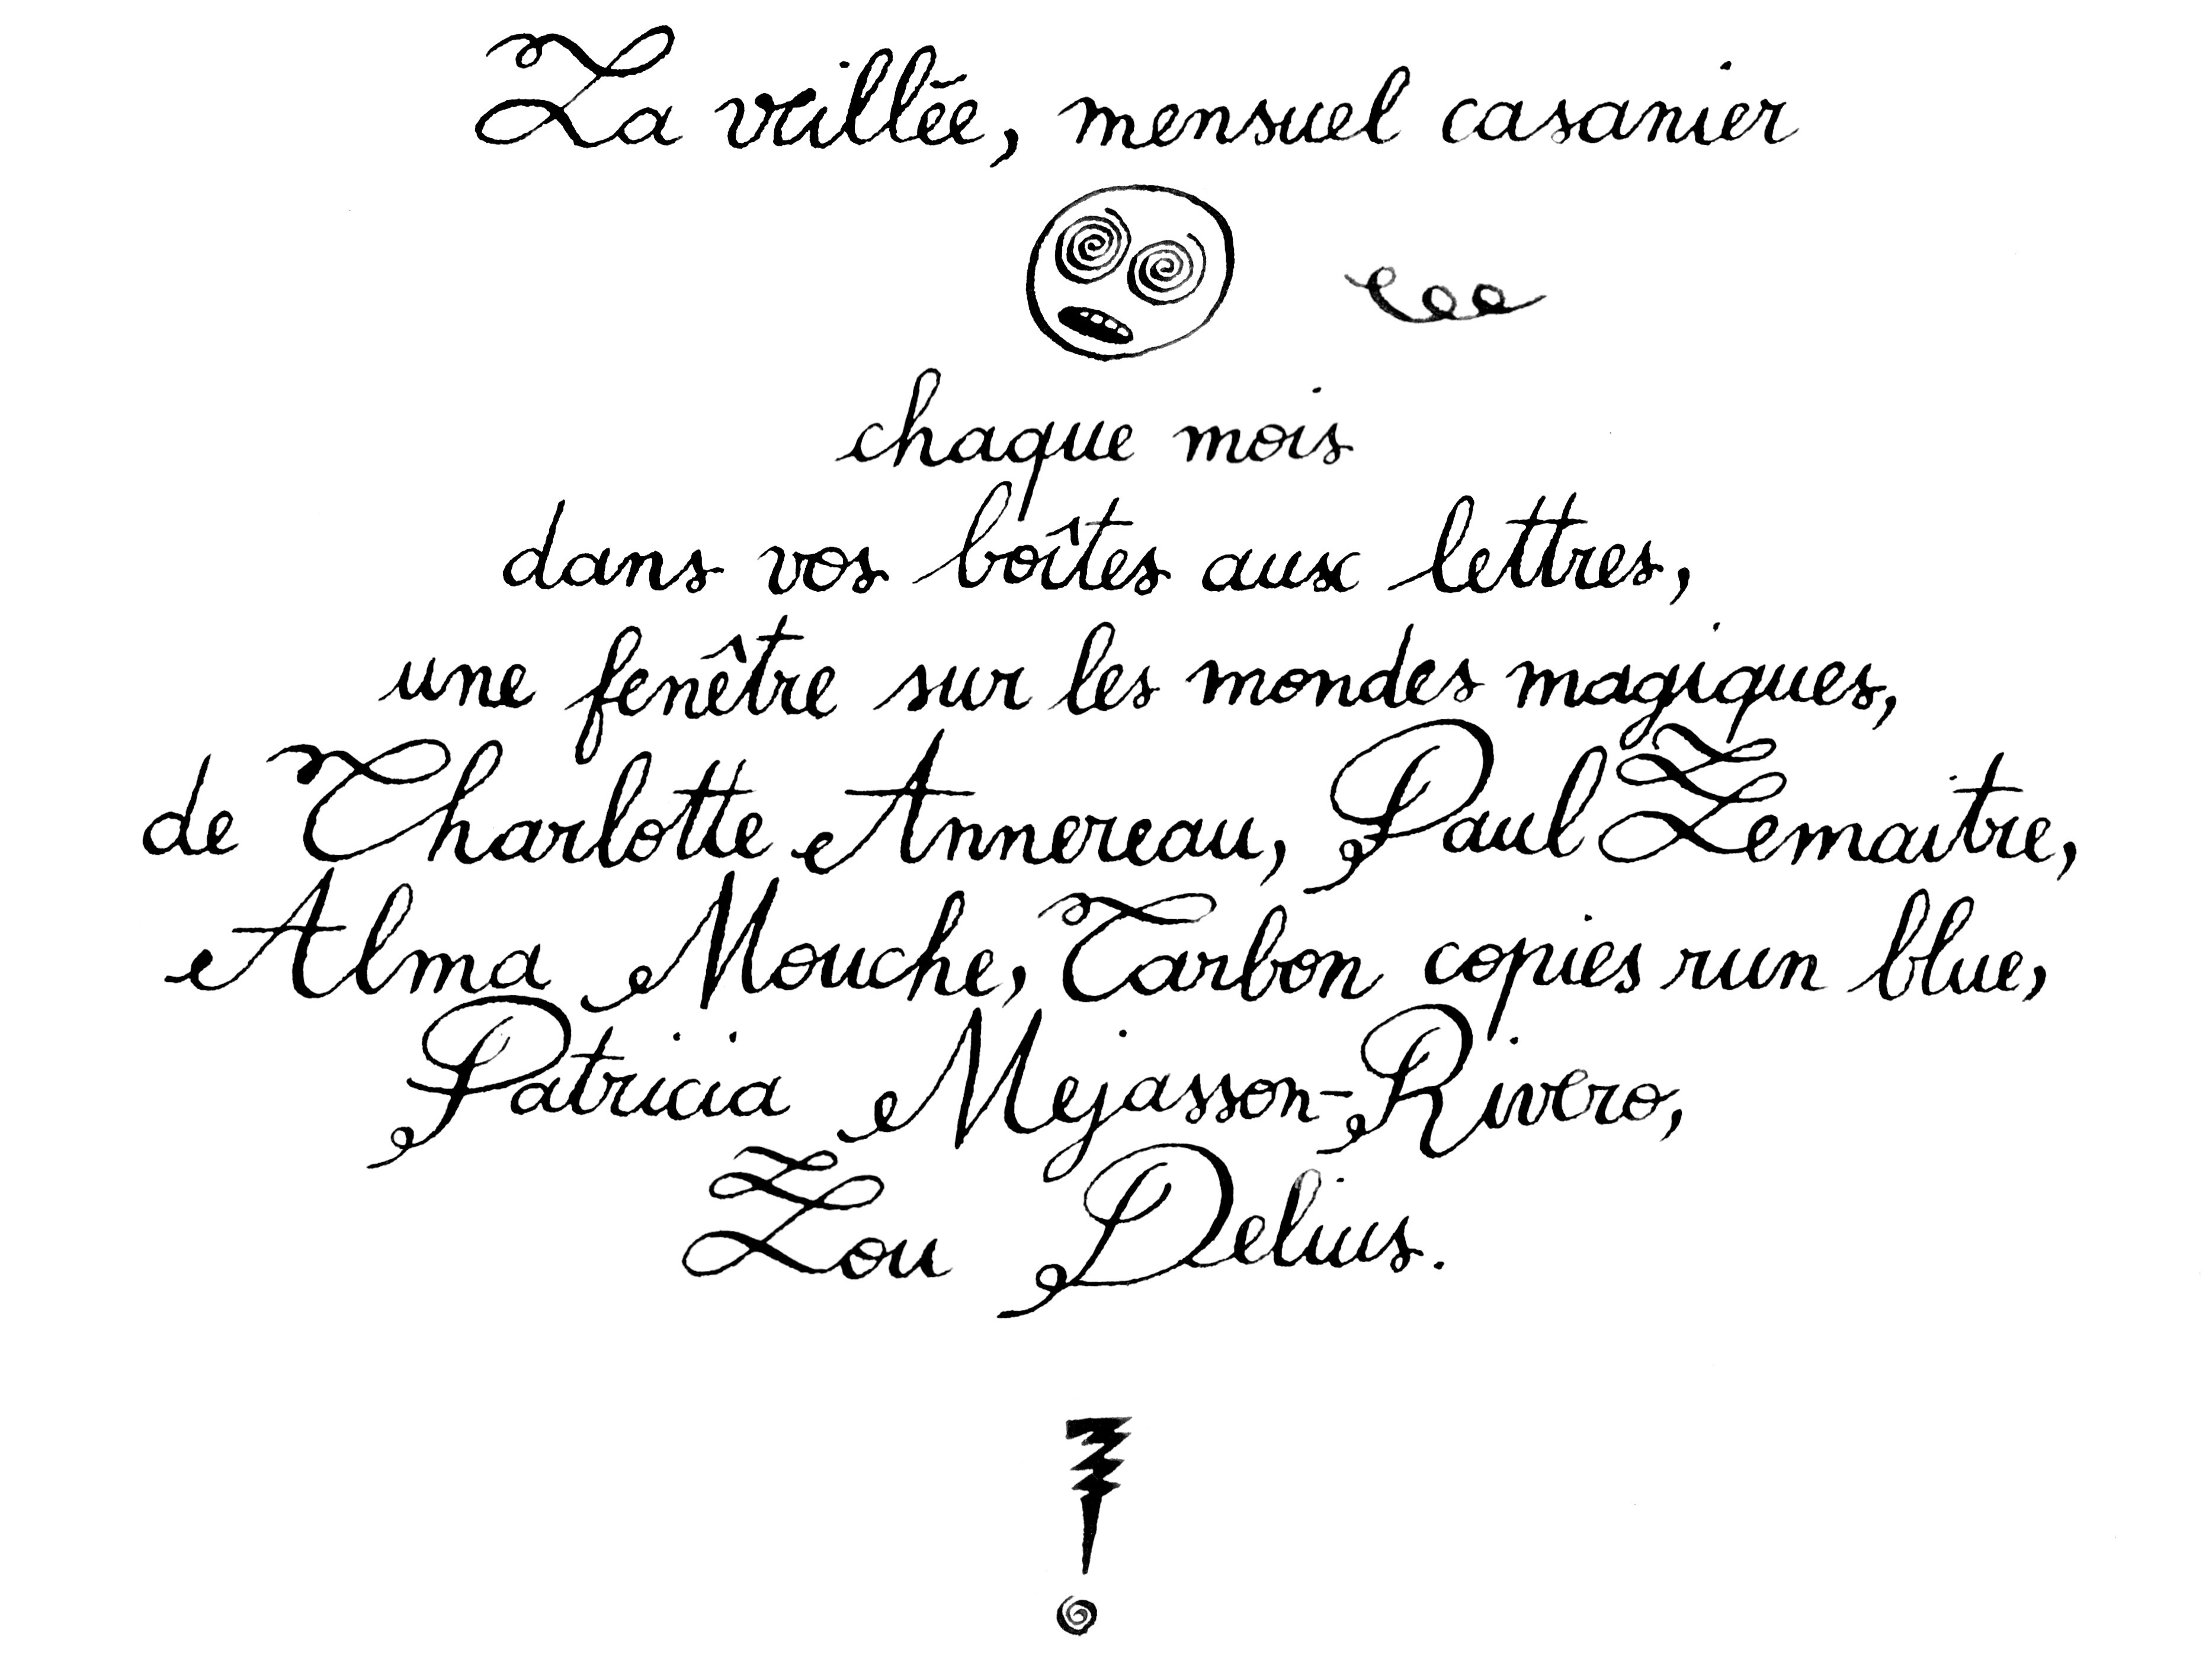 La veillée, mensuel casanier
chaque mois
dans vos boîtes aux lettres,
une fenêtre sur les mondes magiques,
de Charlotte Annereau, Paul Lemaitre,
Alma Mouche, Carbon copies run blue,
Patricia Mejasson-Rivero,
Lou Delius.
!